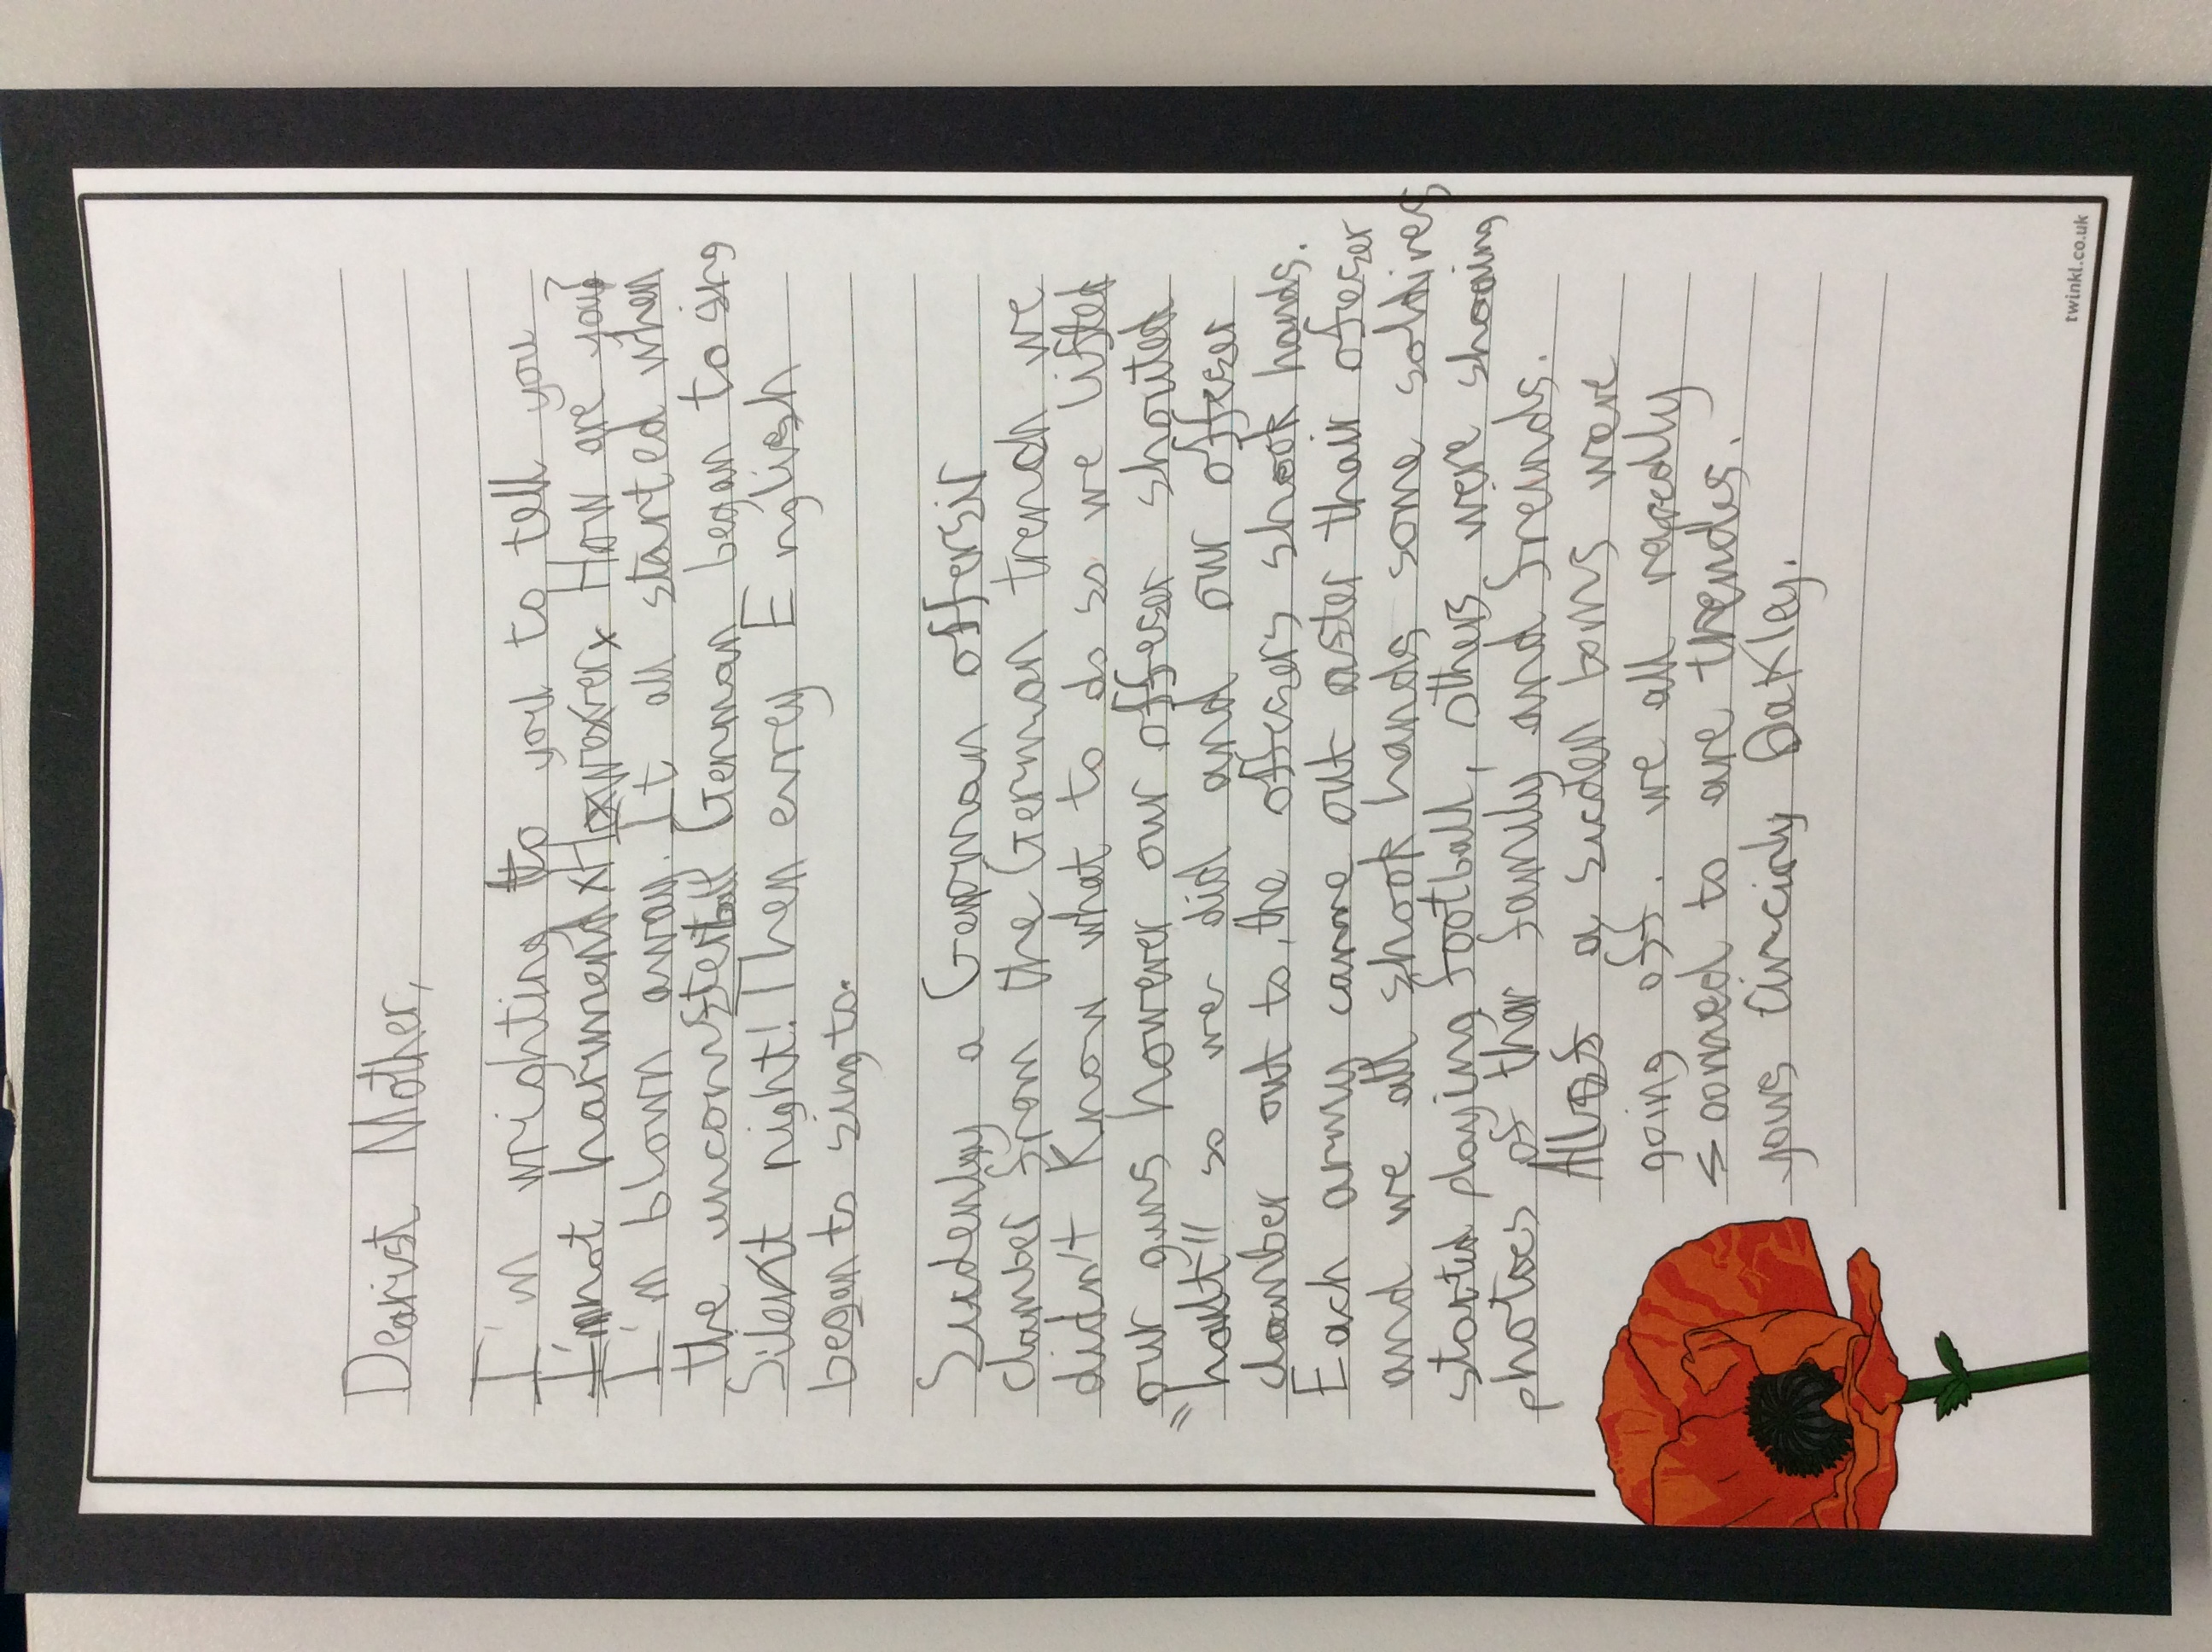 Dearist Mother,
I'm wrighting to you to tell you
I'm not harmend However How are you?
I'm blown away. It all started when
the German began to sing
Silent night! Then evrey English
began to sing to.
Sudenly a German offersir
clamber from the German trench we
didn't Know what to do so we lifted
our guns hower our offeser shouted
"halt" so we did and our offeser
clamber out to, the offesers shook hands.
Each army came out after thair ofeser
and we all shook hands some soldires
started playing football, others were showing
photoes of thair family and freinds.
All of a sudden boms were
going off. we all rapedly
soomed to are trendes.
yours Cinciarly Oakley.
twinkl.co.uk